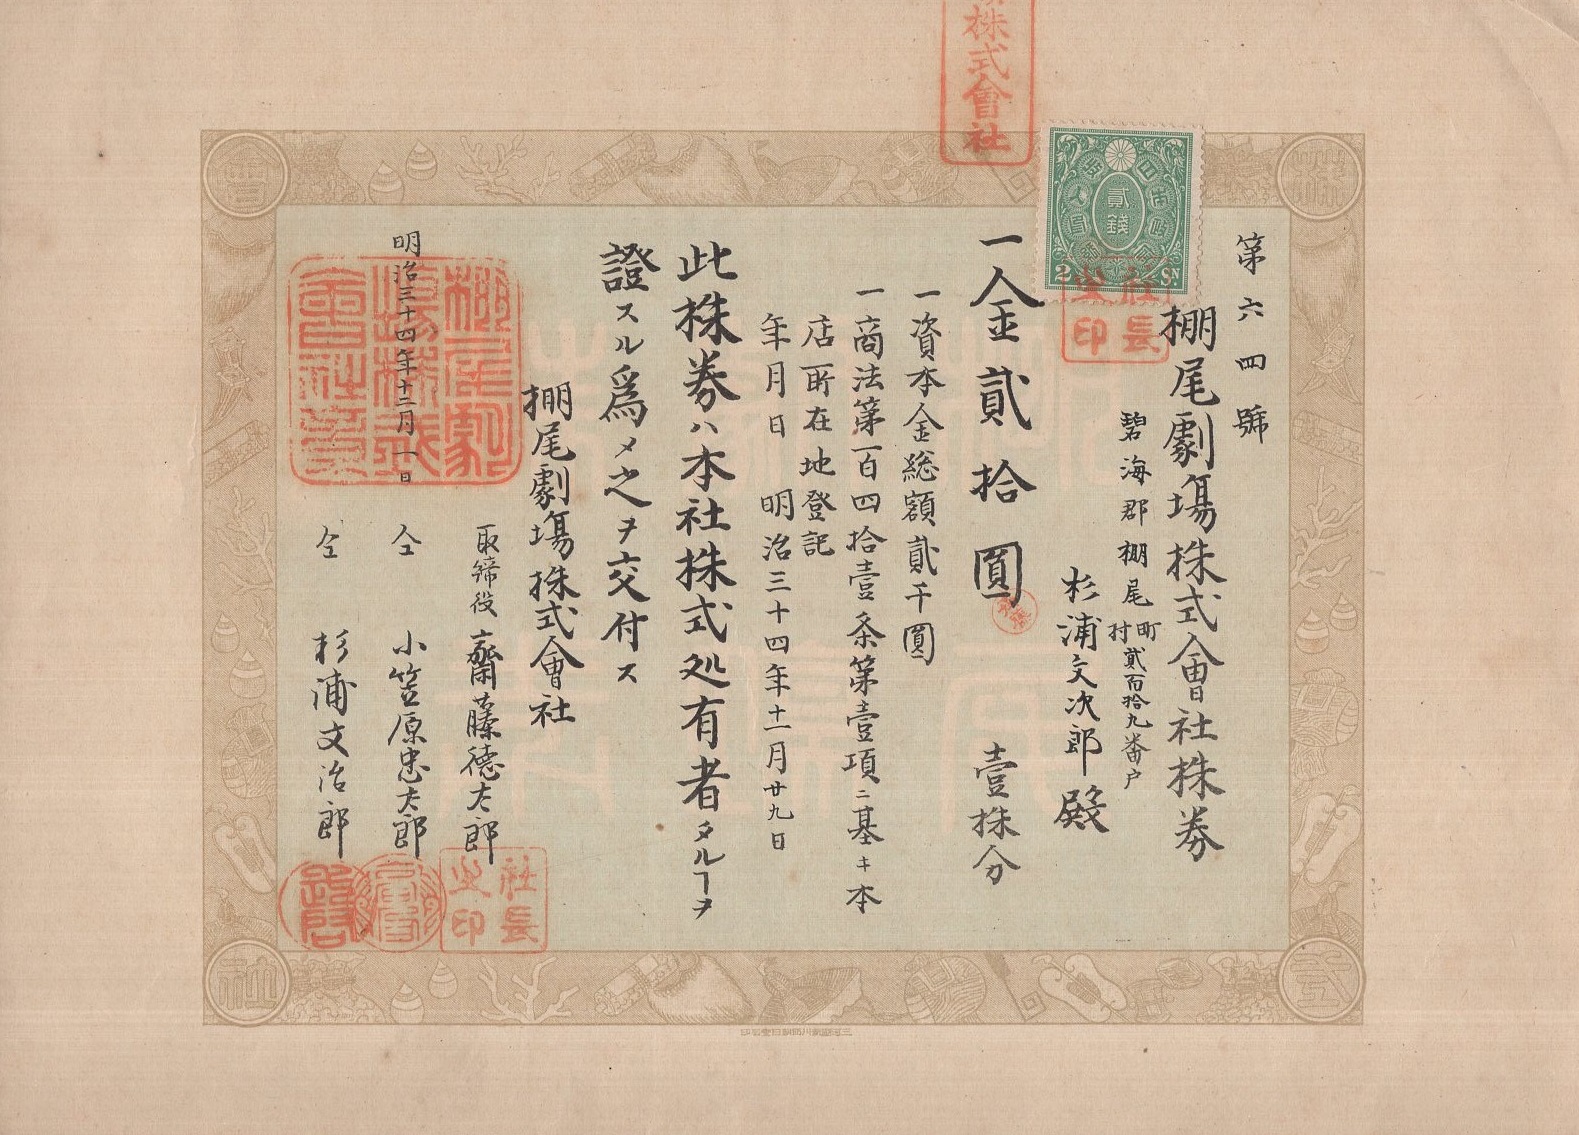 第六四號
棚尾劇塲株式會社株券
碧海郡棚尾町村貳百拾九番戸
杉浦文次郎殿
一金貳拾圓 壹株分
一資本金総額貳千圓
一商法第一百四拾壹条第壹項ニ基キ本
店所在地登記
年月日 明治三十四年十一月廿九日
此株券ハ本社株式処有者タルヿヲ
證スル爲メ之ヲ交付ス
棚尾劇塲株式會社
明治三十四年十二月一日
取締役 齋藤德太郎
仝 小笠原忠太郎
仝 杉浦文治郎
株式會社
貳錢
2 SN
社長之印
棚尾劇塲株式會社章
社長之印
株式會社